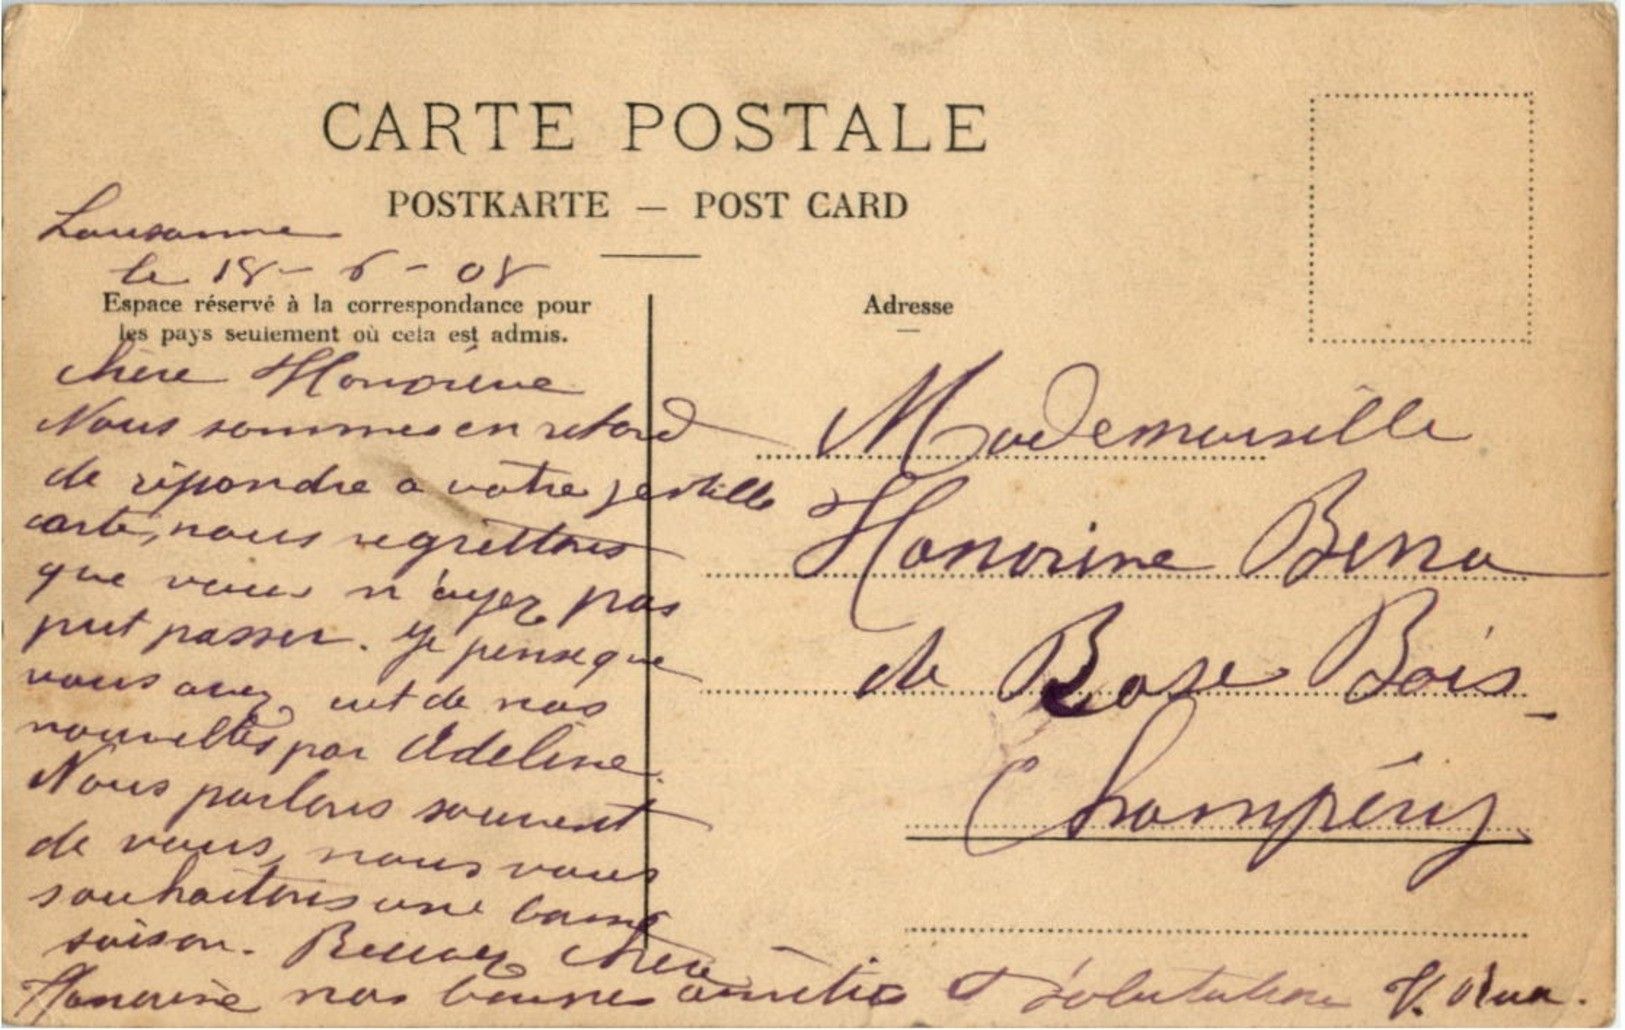 CARTE POSTALE
POSTKARTE — POST CARD
Lausanne
le 18 - 6 - 08
Espace réservé à la correspondance pour
les pays seulement où cela est admis.
Adresse
chère Honorine
Nous sommes en retard
de répondre a votre gentille
carte, nous regrettons
que vous n'ayez pas
put passer. Je pense que
vous avez eut de nos
nouvelles par Adeline.
Nous parlons souvent
de vous, nous vous
souhaitons une bonne
saison. Recevez chère
Honorine nos bonnes amitiés
Mademoiselle
Honorine
de Bois
Champéry